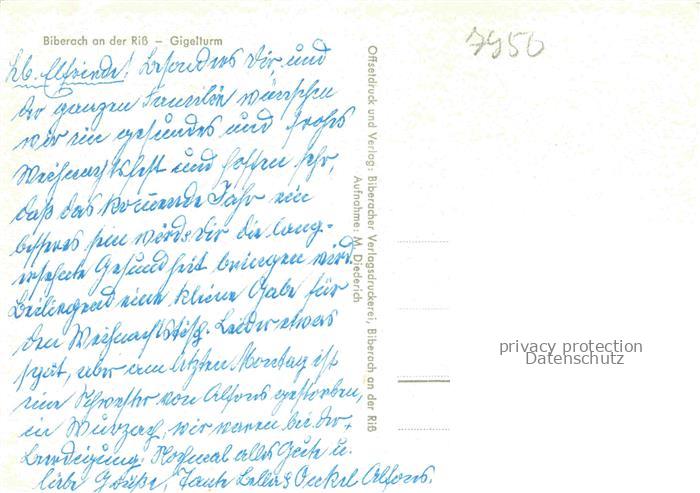 Biberach an der Riß – Gigelturm
7950
Lb. Elfriede! Besonders Dir und
der ganzen Familie wünschen
wir ein gesundes und frohes
Weihnachtsfest und hoffen sehr,
daß das kommende Jahr ein
besseres sein wird & Dir die lang-
ersehnte Gesundheit bringen wird
Beiliegend eine kleine Gabe für
den Weihnachtstisch. Leider etwas
spät, aber am letzten Montag ist
eine Schwester von Alfons gestorben,
in Wurzach, wir waren bei der
Beerdigung. Nochmal alles Gute u.
liebe Grüße, Tante Bella & Onkel Alfons.
Offsetdruck und Verlag: Biberacher Verlagsdruckerei, Biberach an der Riß
Aufnahme: M. Diederich
privacy protection
Datenschutz